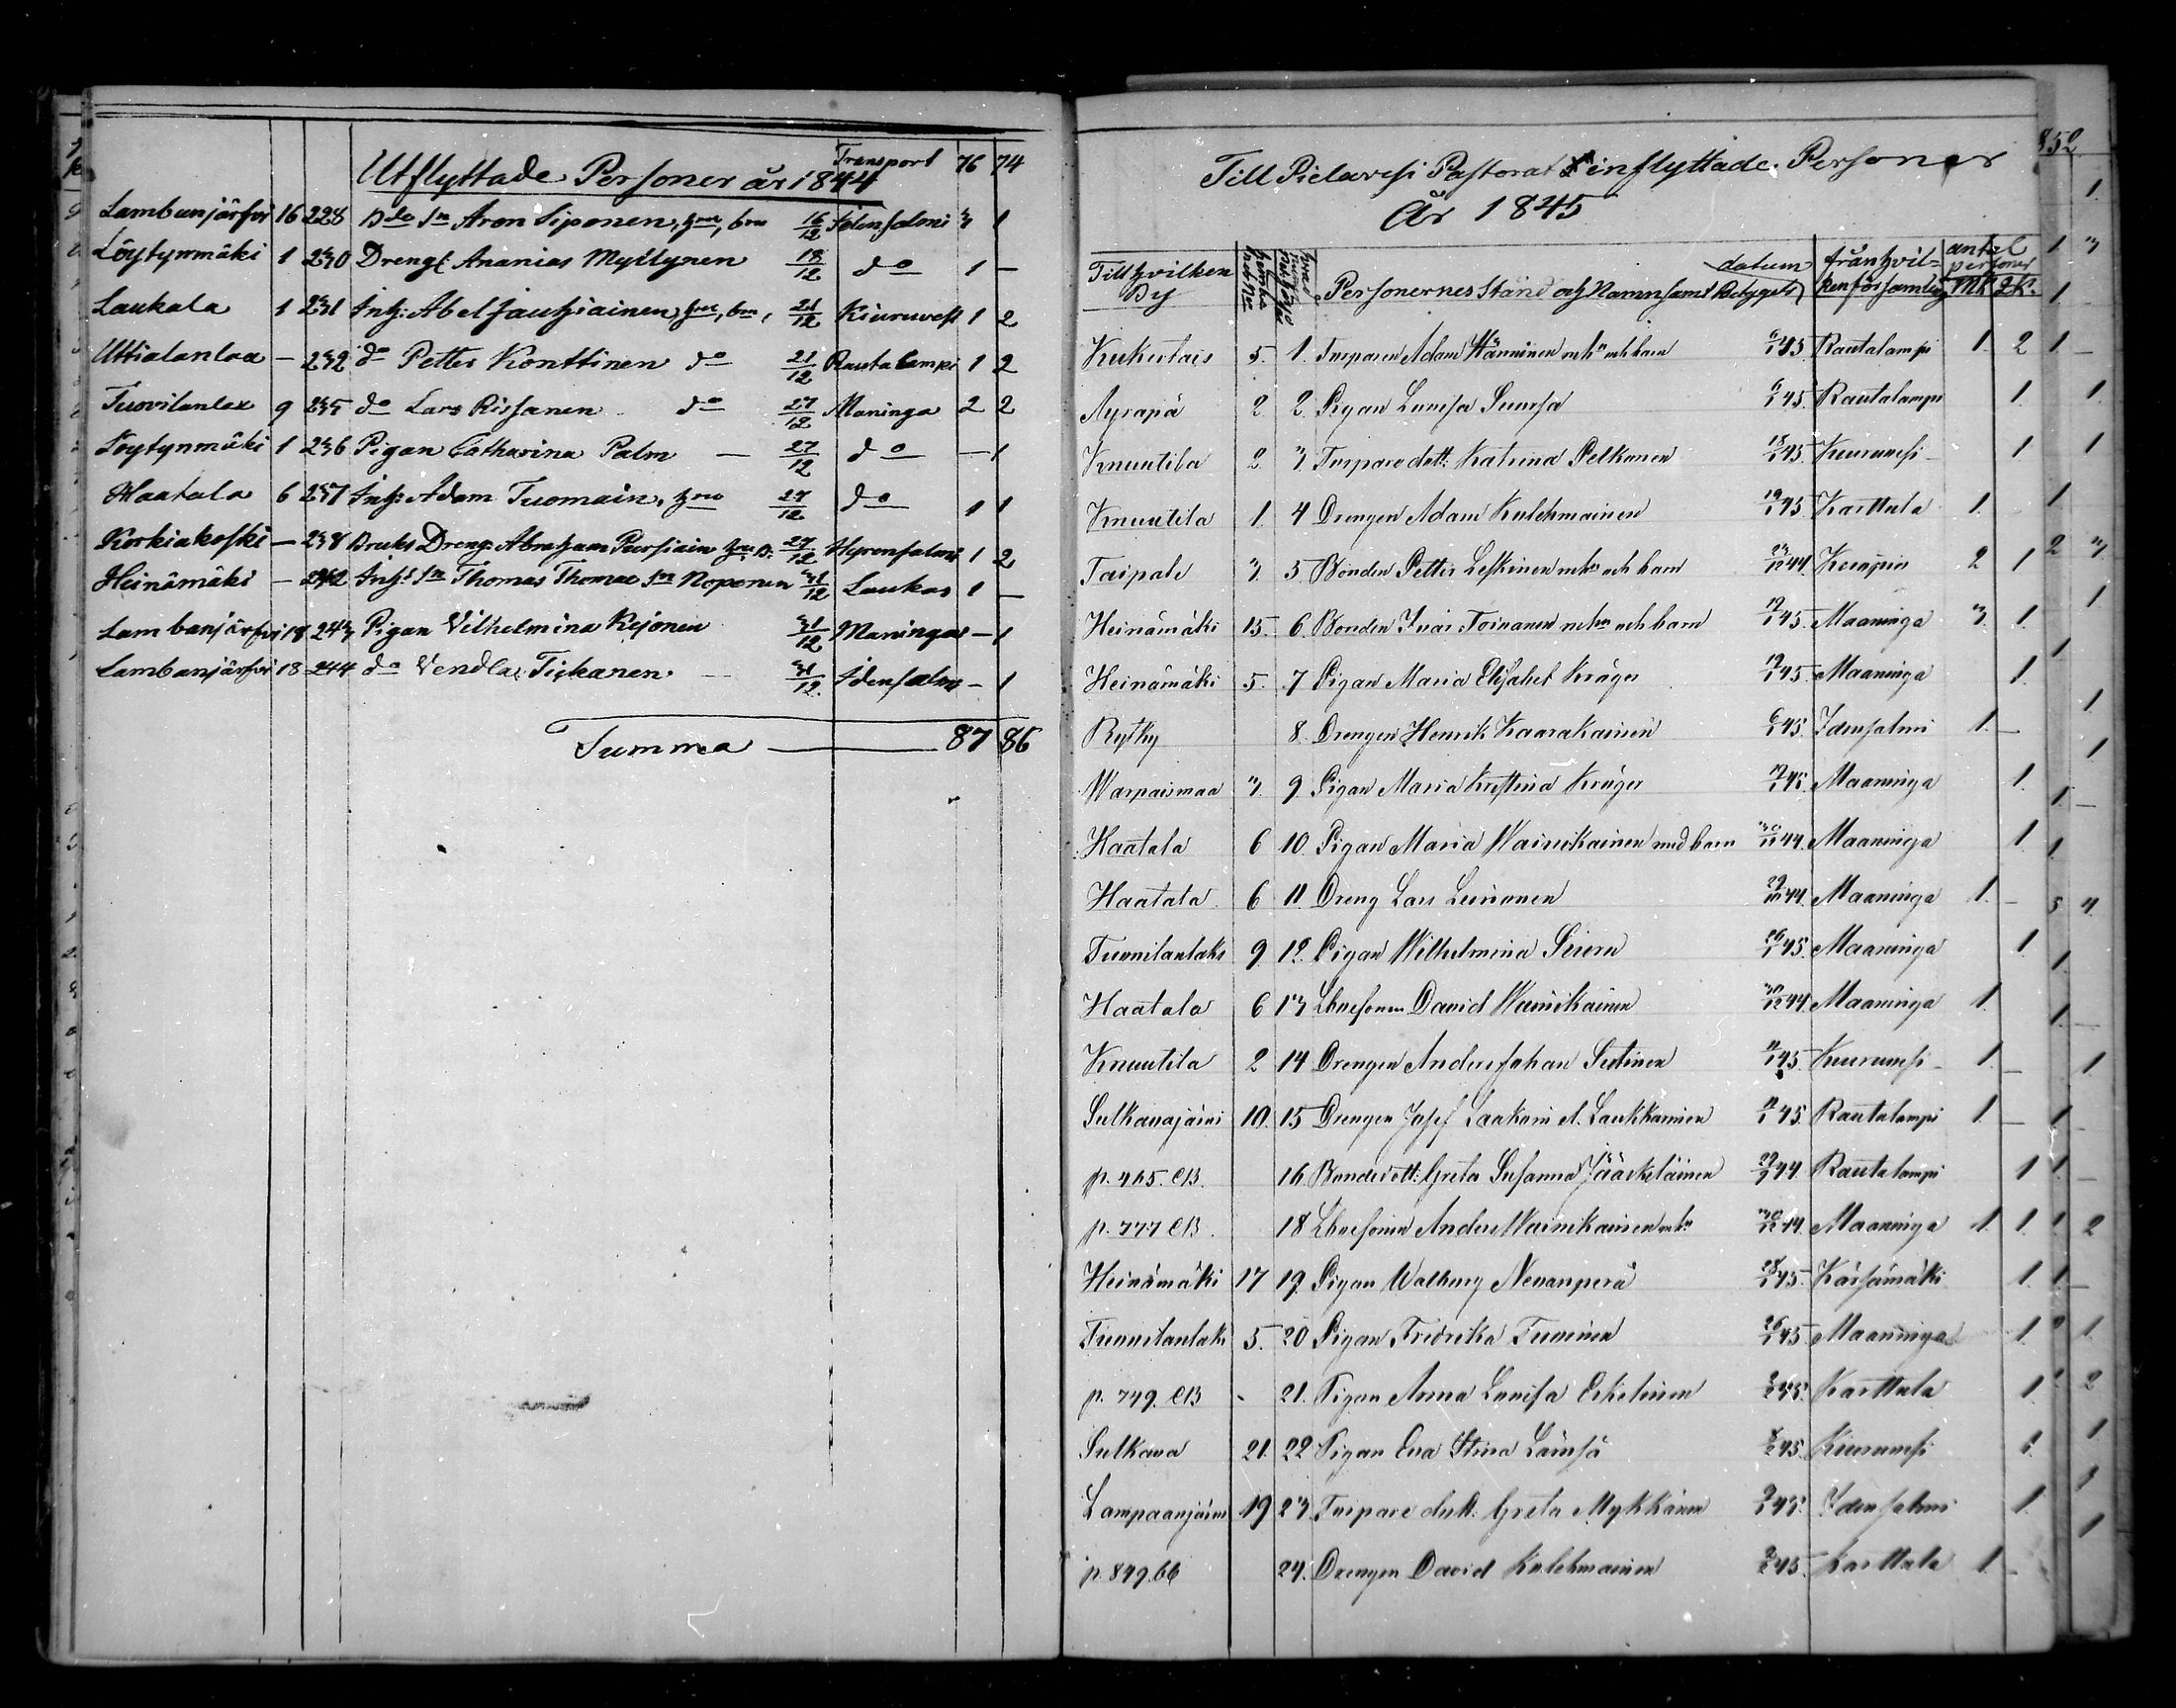 Transport 76 74
Utflyttade Personer år 1844
Lambanjärfvi 16 228 Bdo Sn Aron Siponen, hru, brn 16/12 Idensalmi 3 1
Löytynmäki 1 230 Dreng: Ananias Myllynen 18/12 do 1 —
Laukala 1 231 Inh: Abel Jauhiainen, hru, brn, 21/12 Kiuruvesi 1 2
Uttialanlax — 232 do Petter Konttinen do 21/12 Rautalampi 1 2
Tuovilanlax 9 235 do Lars Rissanen do 27/12 Maninga 2 2
Löytynmäki 1 236 Pigan Catharina Palm — 27/12 do — 1
Haatala 6 237 Inh: Adam Tuomain, hru 27/12 do 1 1
Korkiakoski — 238 Bruks Dreng: Abraham Pursiain hru B: 27/12 Hyrensalmi 1 2
Heinämäki — 242 Inh: Sn Thomas Thomae Sn Noponen 31/12 Laukas 1 —
Lambanjärfvi 18 243 Pigan Vilhelmina Rejonen 31/12 Maninga — 1
Lambanjärfvi 18 244 do Vendla Tickanen 31/12 Idensalmi — 1
Summa — 87 86
Till Pielavesi Pastorat inflyttade Personer
År 1845
Till hvilken By Personernes Stånd och Namn samt Betygets datum från hvilken församling antal personer MK QK.
Kukertais 5. 1. Torparen Adam Hänninen m hu och barn 6/1 45 Rautalampi 1. 2
Ayräpä 2 2. Pigan Lovisa Sumsa 6/1 45. Rautalampi 1.
Knuutila 2. 3 Torpare dott: Katrina Pelkonen 18/1 45. Kiuruvesi 1
Knuutila 1. 4 Drengen Adam Kulehmainen 19/1 45. Karttula 1.
Taipale 3. 5. Bonden Petter Leskinen m hu och barn 23/12 44. Kuopio 2 1
Heinämäki 15. 6. Bonden Ivar Toivanen m hu och barn 19/1 45. Maaninga 3. 1.
Heinämäki 5. 7 Pigan Maria Elisabet Kröger 19/1 45. Maaninga 1.
Rytky 8. Drengen Henrik Kaarakainen 6/1 45. Idensalmi 1. —
Warpaismaa 3. 9. Pigan Maria Kristina Kröger 19/1 45. Maaninga 1.
Haatala 6 10. Pigan Maria Wainikainen med barn 44. Maaninga 1
Haatala 6 11. Dreng Lars Leinonen 44. Maaninga 1. —
Tuovilanlaks 9. 12. Pigan Wilhelmina Sirén 26/1 45. Maaninga 1
Haatala 6 13 Lösesonen David Wainikainen 30/12 44. Maaninga 1.
Knuutila 2 14 Drengen Anders Johan Sutinen 11/1 45. Kiuruvesi 1. —
Sulkavajärvi 10. 15 Drengen Josef Laakoin el. Laukkanen 45. Rautalampi 1. —
p. 465. CB. 16 Bondedott: Greta Susanna Jääskeläinen 29/9 44. Rautalampi 1
p. 777 CB. 18 Lösesonen Anders Wainikainen m hu 30/12 44. Maaninga 1. 1.
Heinämäki 17 19. Pigan Walborg Nevanperä 28/1 45. Kärsämäki 1.
Tuovilanlaks 5. 20 Pigan Fredrika Tuovinen 26/1 45. Maaninga 1
p. 749. CB - 21. Pigan Anna Lovisa Eskelinen 2/2 45. Karttula 1
Sulkava 21. 22 Pigan Eva Stina Lämsä 2/2 45. Kiuruvesi 1.
Lampaanjärvi 19 23. Torpare dott: Greta Mykkänen 9/2 45. Idensalmi 1.
p. 849. 66 24. Drengen David Kulehmainen 2/2 45. Karttula 1 -
852